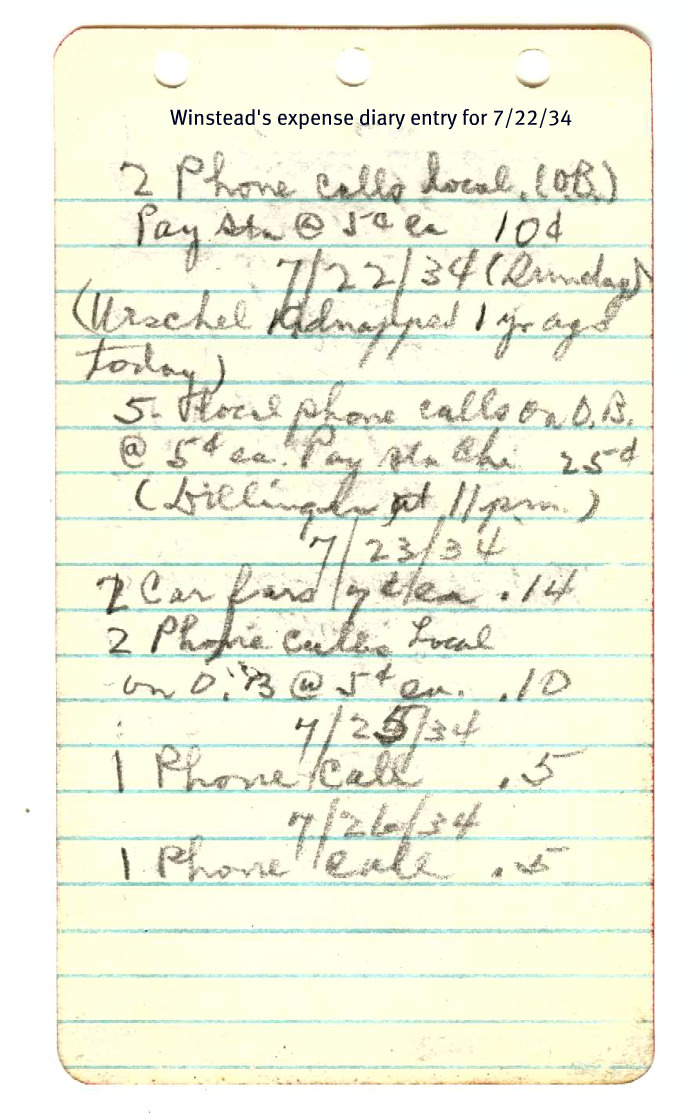 Winstead's expense diary entry for 7/22/34
2 Phone calls local. (O.B.)
Pay Stn @ 5¢ ea 10¢
7/22/34 (Sunday)
(Urschel Kidnapped 1 yr ago
today)
5 local phone calls on O.B.
@ 5¢ ea. Pay stn Chi 25¢
(Dillinger at 11 pm.)
7/23/34
2 Car fars 7¢ ea .14
2 Phone calls Local
on O.B @ 5¢ ea. .10
7/25/34
1 Phone Call .5
7/26/34
1 Phone call .5